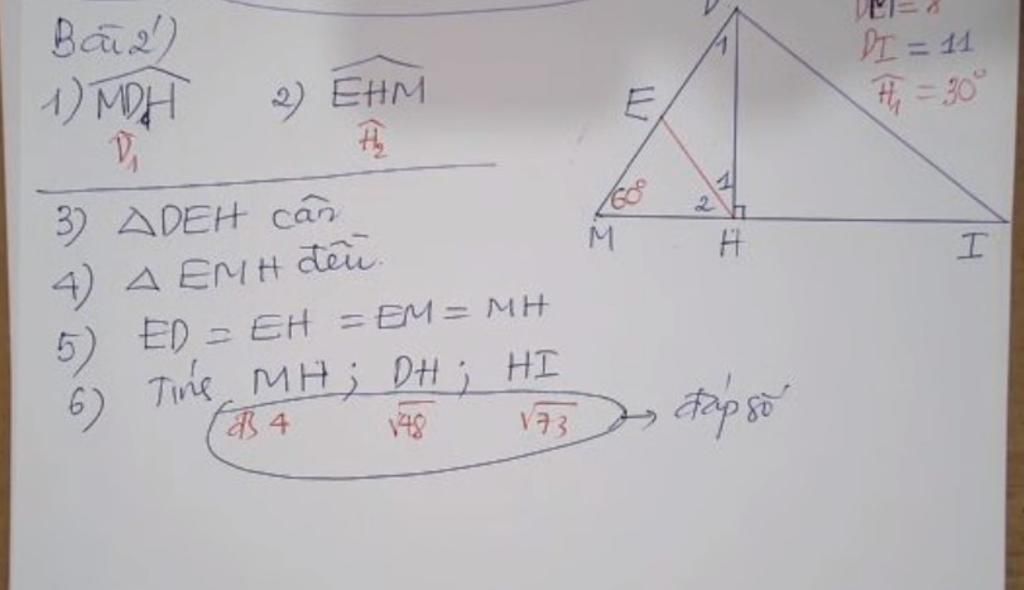 Bài 2)
1) MDH 2) EHM
D̂₁ Ĥ₂
3) △DEH cân
4) △ EMH đều.
5) ED = EH = EM = MH
6) Tính MH ; DH ; HI
ĐS 4 √48 √73 → đáp số
DI = 11
Ĥ₁ = 30°
1
E
60° 2 1
M H I